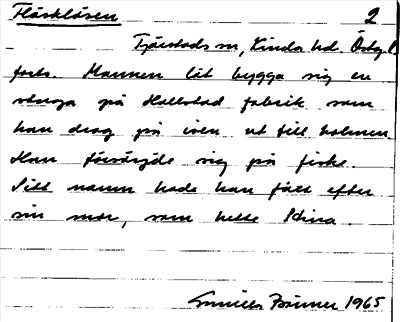 Fläsklösen 2
Tjärstads sn, Kinda hd. Östg.
forts. Mannen lät bygga sig en
stuga på Hallstad fabrik som
han drog på isen ut till holmen.
Han försörjde sig på fiske.
Sitt namn hade han fått efter
sin mor, som hette Stina.
Gunilla 1965